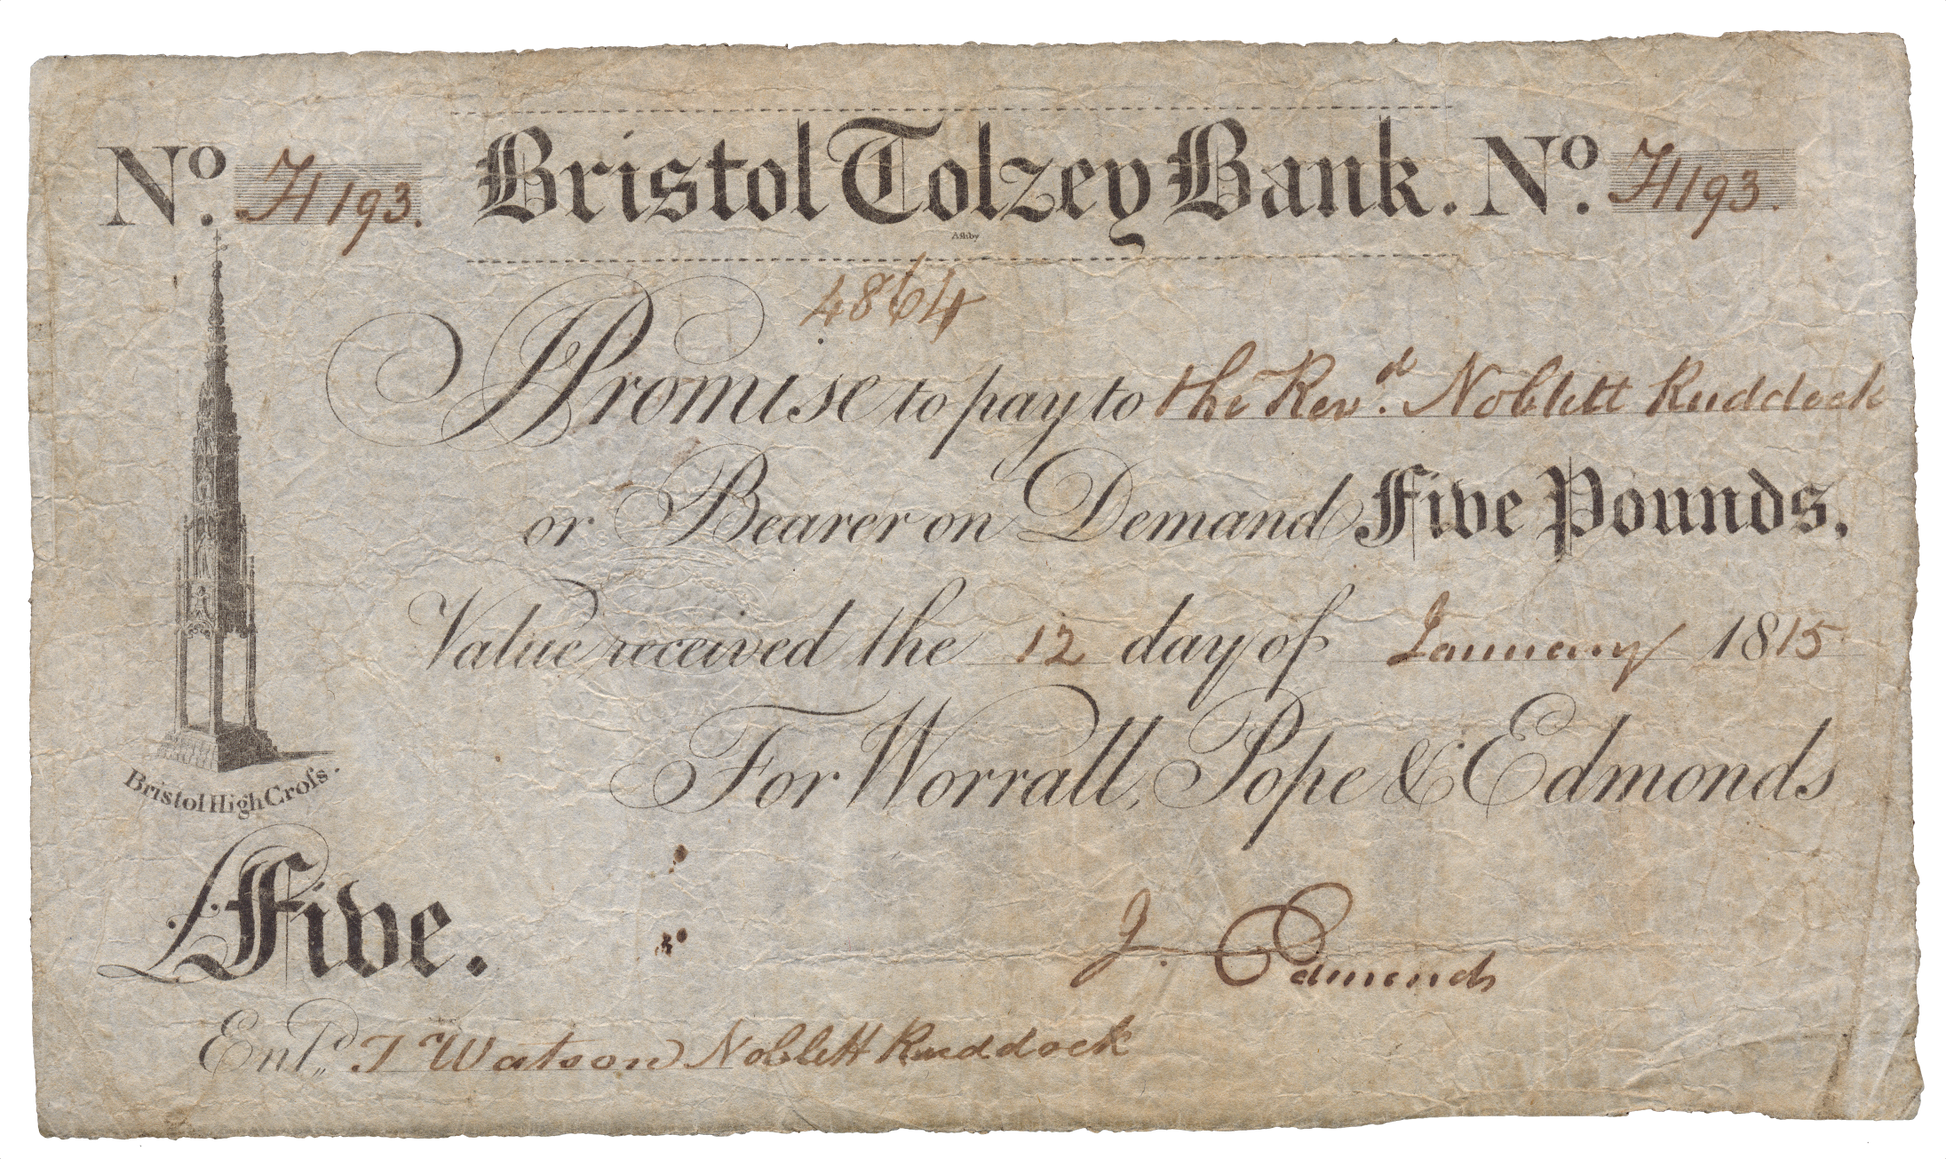 No. H193. Bristol Tolzey Bank. No. H193.
Ashby
4864
I Promise to pay to the Revd. Noblett Ruddock
or Bearer on Demand Five Pounds.
Value received the 12 day of January 1815
For Worrall, Pope & Edmonds
Bristol High Croſs.
£Five.
J. Edmonds
Entd. J Watson Noblett Ruddock